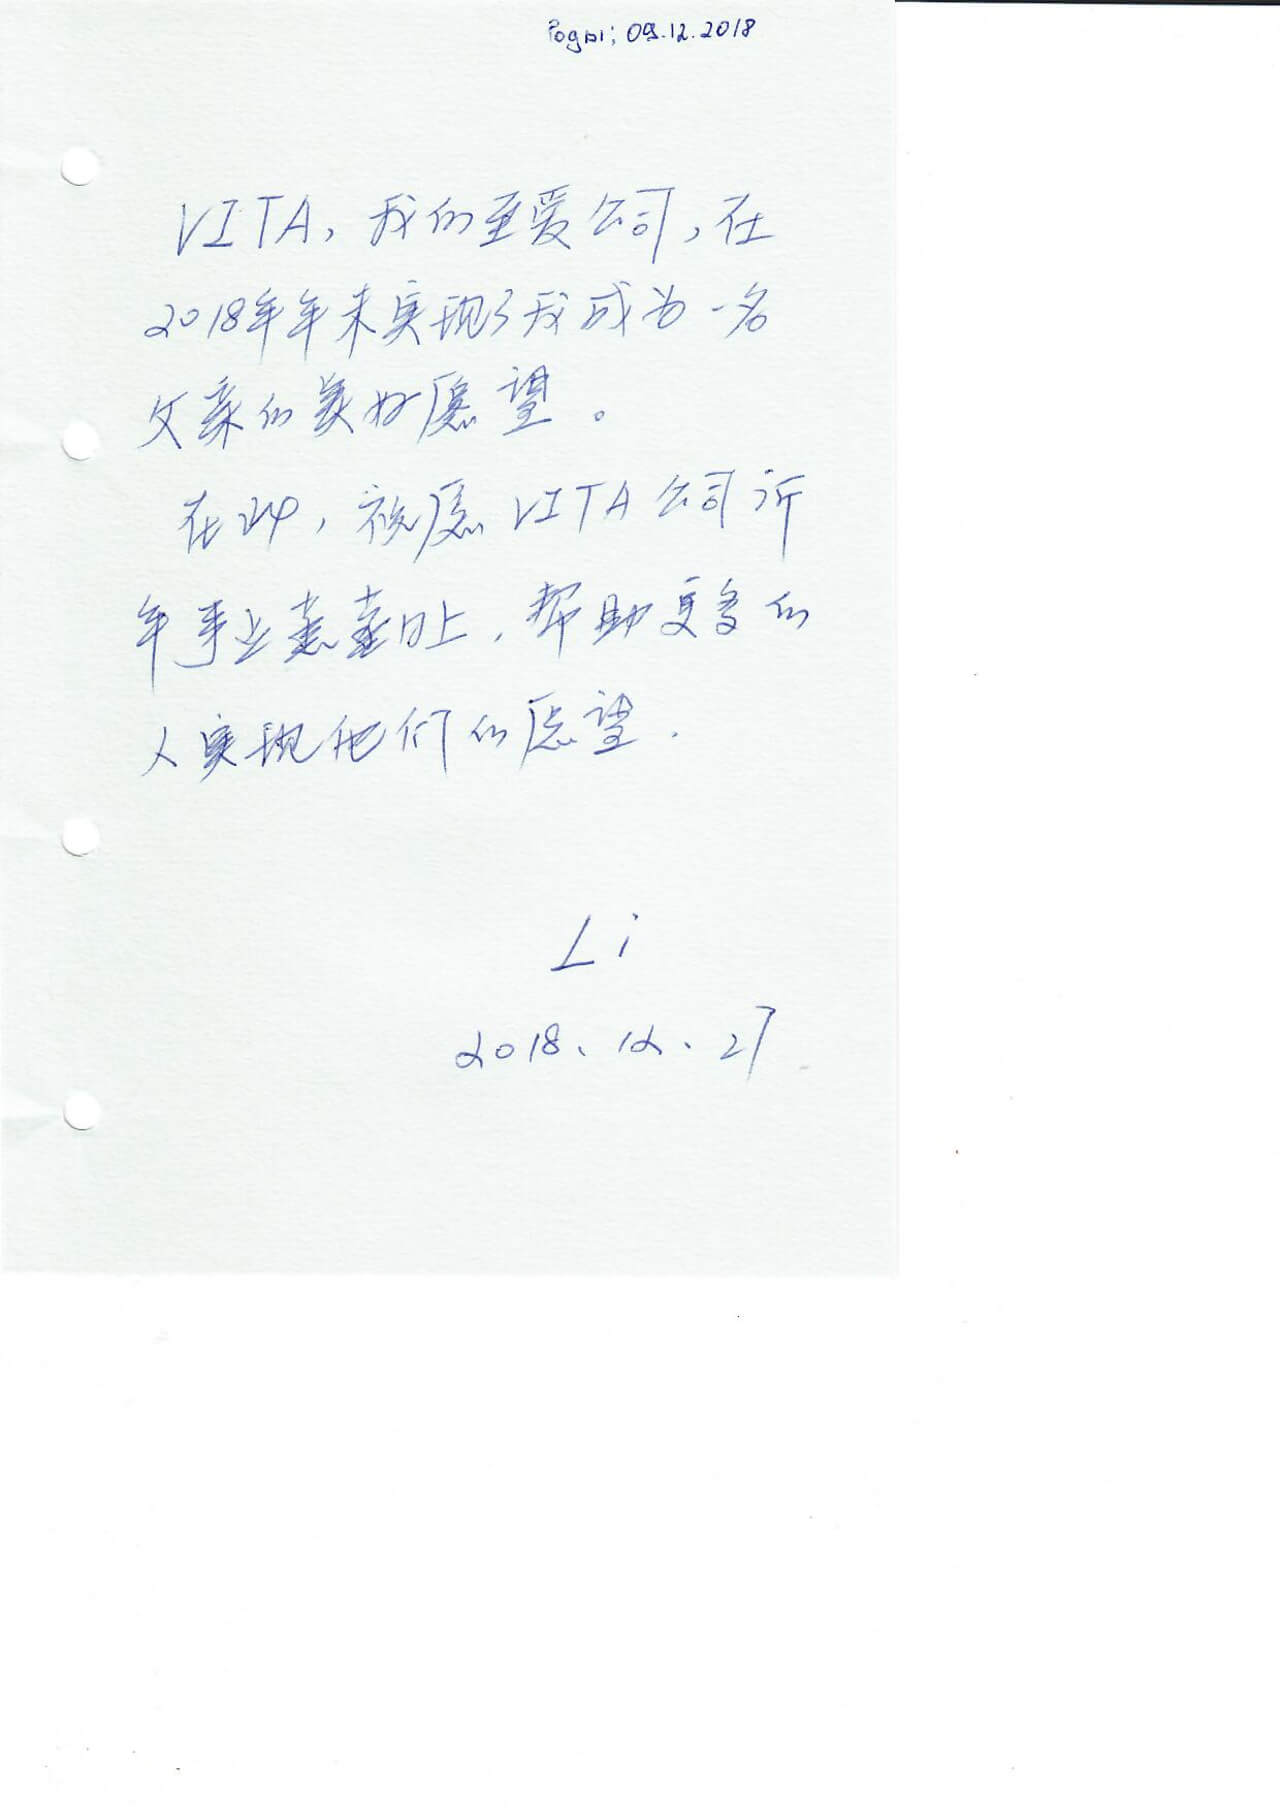 Роды; 09.12.2018
VITA, 我的至爱公司, 在
2018年年末实现了我成为一名
父亲的美好愿望。
在此, 祝愿 VITA 公司
年事业蒸蒸日上, 帮助更多的
人实现他们的愿望.
Li
2018、12、27